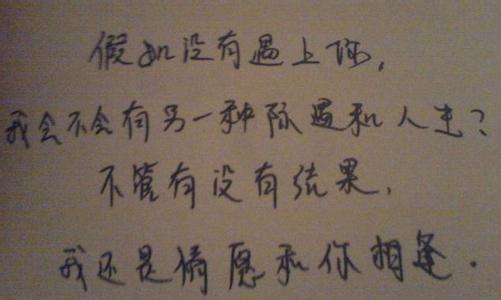 假如没有遇上你,
我会不会有另一种际遇和人生?
不管有没有结果,
我还是情愿和你相逢.